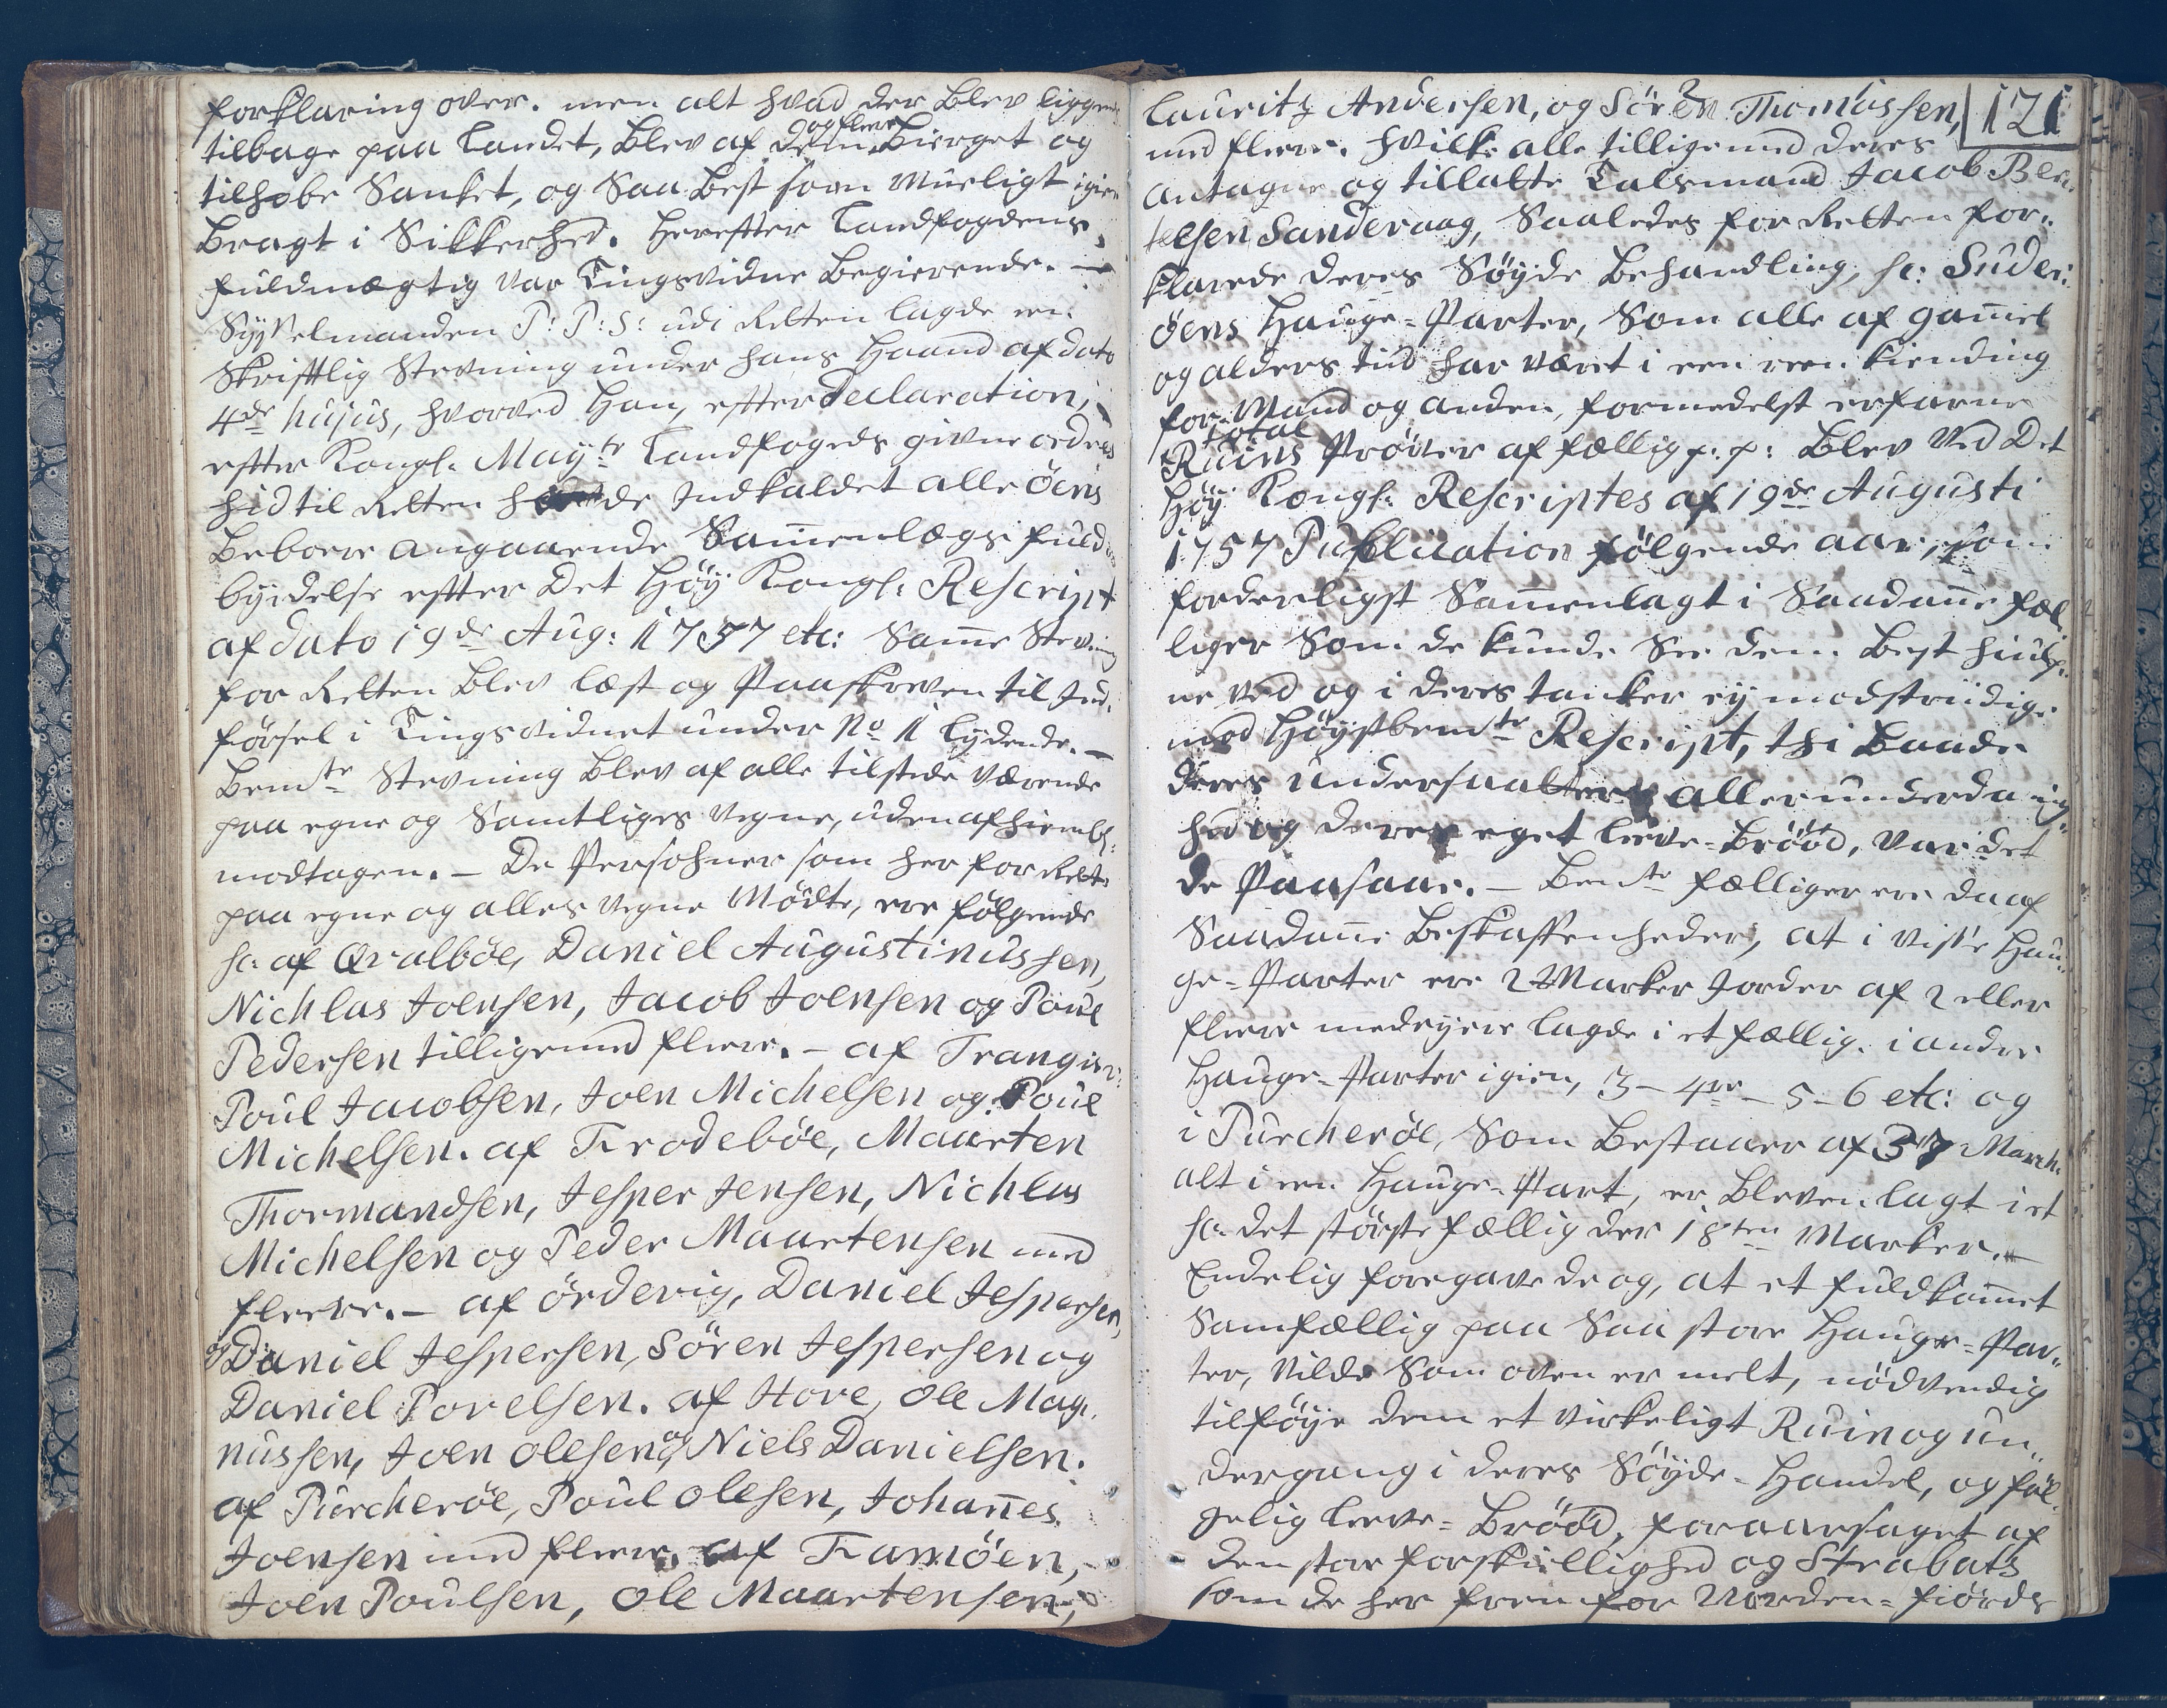 forklaring over. men alt hvad der blev liggend
tilbage paa Landet, blev af dem og flere Bierget og
tilhobe Sanket, og Saa best som Mueligt igien
Bragt i Sikkerhed. Hereffter Landfogdens
fuldmægtig var Tingsvidne Begierende. —
Sysselmanden P: P: S: udi Retten lagde een
Skrifftlig Stevning under hans Haand af dato
4de hujus, hvorved Han, effter Declaration,
effter Kongl. Mayts Landfogeds givne ordres
hid til Retten hafde Indkaldet alle Öens
Beboere angaaende Sam̄enlægs fuld
byrdelse effter Det Höy Kongl: Rescript
af dato 19de Aug: 1757 etc: Sam̄e Stevning
for Retten blev læst og Paaskreven til Ind,
försel i Tingsvidnet under No 1 lydende. —
Bemte Stevning blev af alle tilstede værende
paa egne og Samtliges vegne, uden afhiembl:
modtagen. — De Persohner som her for Rette
paa egne og alles vegne Mödte, ere fölgende
sc: af Qvalböe, Daniel Augustinussen,
Nichlas Joensen, Jacob Joensen og Poul
Pedersen tilligemed flere. — af Trangisv:
Poul Jacobsen, Joen Michelsen og Poul
Michelsen. af Frodeböe, Maarten
Thormandsen, Jesper Jensen, Nichlas
Michelsen og Peder Maartensen med
fleere. — af örderig, Daniel Jespersen,
og Daniel Jespersen, Sören Jespersen og
Daniel Porelsen. af Hove, Ole Mag,
nussen, Joen Olesen, og Niels Danielsen.
af Pürcheröe, Poul Olesen, Johan̄es
Joensen med flere. af Famöen,
Joen Poulsen, Ole Maartensen,
121
Lauritz Andersen, og Sören Thomassen,
med flere. hvilke alle tilligemed deres
antagne og tillatte Talsmand Jacob Ber,
telsen Sanderaag, Saaledes for Retten for,,
klarede deres Söyde Behandling, sc: Suder:
öens Hauge-Parter, Som alle af gam̄el
og alders tiid har været i een reen kiending
for Mand og anden, formedelst erfarne
total
Ruins Pröver af fællig p. p: blev ved Det
Höy Kongl: Rescriptes af 19de Augusti
1757 Publication fölgende aar, som
forderligst Sam̄enlagt i Saadan̄e fæl,
liger Som de kunde See dem best hiulp,
ne ved og i deres tanker ey modstriidige
mod Höystbemte Rescript, thi baade
deres undersaatters allerunderdanig,,
hed og deres eget leeve-Brööd, var det
de Paasaae. — Bemte fælliger ere da af
Saadan̄e Beskaffenheder, at i visse Hau,,
ge-Parter ere 2 Marker Jorder af 2 eller
flere medeyere lagde i et fællig. i andre
Hauge-Parter igien, 3 — 4re — 5 - 6 etc: og
i Pürcheröe, Som bestaaer af 37 March:
alt i een Hauge-Part, er bleven lagt i et
sc: det störste fællig der 18ten Marker. —
Endelig foregave de og, at et fuldkom̄et
Samfællig paa Saa store Hauge-Par,,
ter, vilde Som oven er melt, nödvendig
tilföye dem et virkeligt Ruin og un,,
dergang i deres Söyde-Handel, og föl,
gelig leeve-Brööd, foraarsaget af
den store forskiellighed og Strabatz
som de her frem for Norden-fiörds